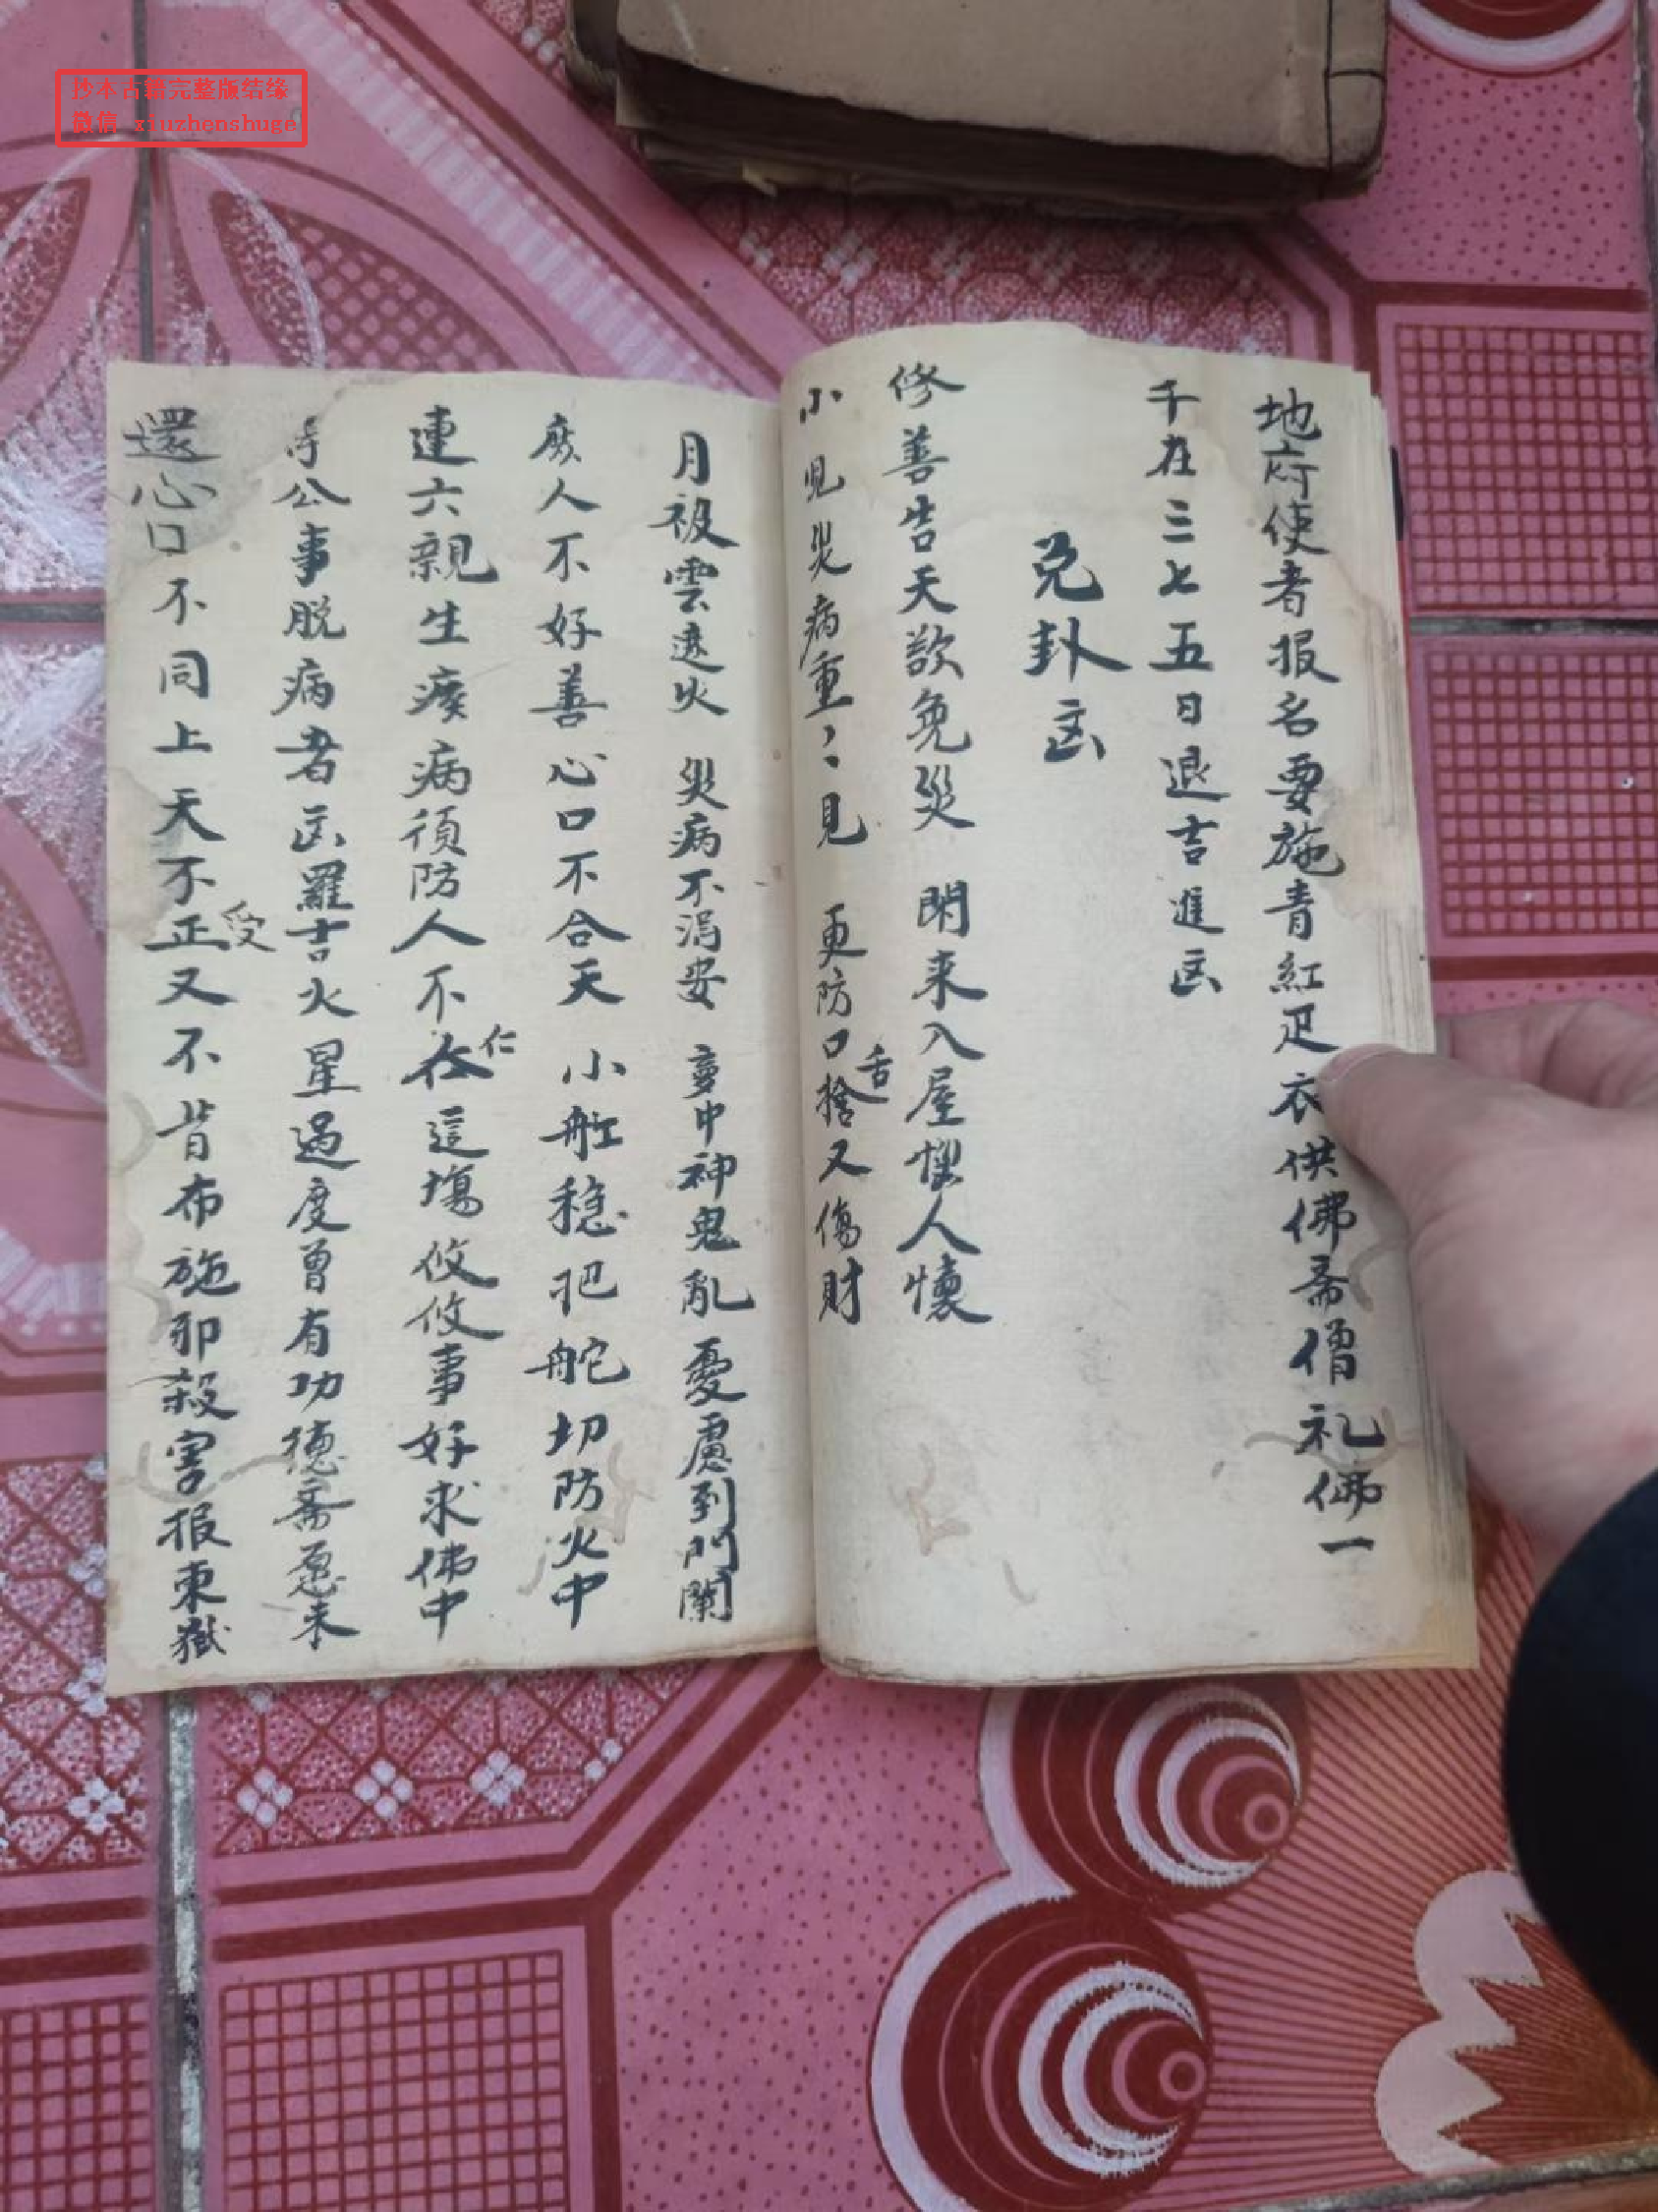 抄本古籍完整版结缘
微信 xiuzhenshuge
地府使者报名要施青紅疋衣供佛斋僧礼佛一
千在三七五日退吉進凶
兑卦凶
修善告天欲免災 閑来入屋惟人懷
小児災病重重見 更防口捨舌又傷財
月被雲遮火 災病不涓安 夢中神鬼亂 憂慮到門闌
厥人不好善 心口不合天 小船稳把舵 切防火中
連六親生痰病須防人不在仁這塲攸攸事好求佛中
寺公事脱病者凶羅吉火星過度曾有功德斋愿未
還心口不同上天不正受又不肯布施卯殺害报東嶽